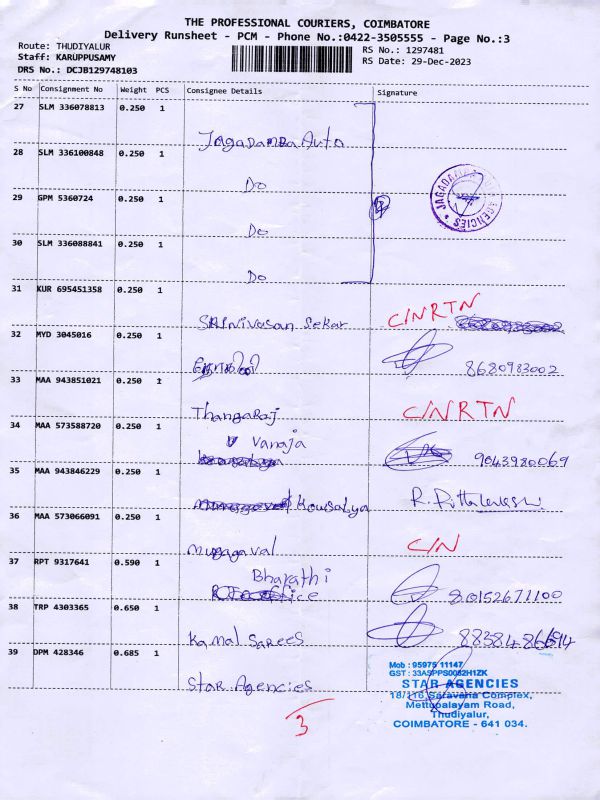 THE PROFESSIONAL COURIERS, COIMBATORE
Delivery Runsheet - PCM - Phone No.:0422-3505555 - Page No.:3
Route: THUDIYALUR
Staff: KARUPPUSAMY
DRS No.: DCJB129748103
RS No.: 1297481
RS Date: 29-Dec-2023
S No Consignment No Weight PCS Consignee Details Signature
27 SLM 336078813 0.250 1
Jagadamba Auto
28 SLM 336100848 0.250 1
Do
29 GPM 5360724 0.250 1
Do
30 SLM 336088841 0.250 1
Do
JAGADAMBA AGENCIES
31 KUR 695451358 0.250 1
Srinivasan Sekar C/N RTN
32 MYD 3045016 0.250 1
8680983002
33 MAA 943851021 0.250 1
Thangaraj C/N RTN
34 MAA 573588720 0.250 1
V Vanaja
9043980069
35 MAA 943846229 0.250 1
Kousalya R.
36 MAA 573066091 0.250 1
Murugaval C/N
37 RPT 9317641 0.590 1
Bharathi
office 80152671100
38 TRP 4303365 0.650 1
Kamal Sarees
39 DPM 428346 0.685 1
Star Agencies
Mob : 95975 11147
GST : 33ASPPS0082H1ZK
STAR AGENCIES
18/116 Saravana Complex,
Mettupalayam Road,
Thudiyalur,
COIMBATORE - 641 034.
3